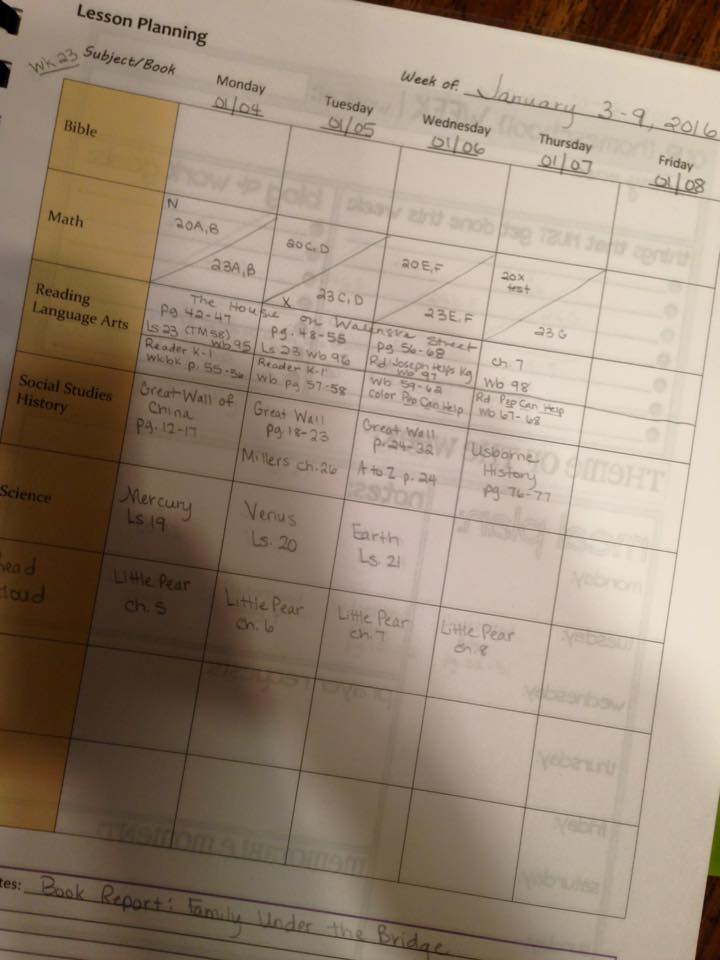 Lesson Planning
Wk 23 Subject/Book
Week of: January 3-9, 2016
Monday
01/04
Tuesday
01/05
Wednesday
01/06
Thursday
01/07
Friday
01/08
Bible
Math
N
20A,B
23A,B
20C,D
X 23C,D
20E,F
23E,F
20x
test
23G
Reading
Language Arts
The House on Walenska Street
pg 42-47
Ls 23 (TM58) Wb 95
pg. 48-55
Ls 23 Wb 96
pg 56-68
Rd Joseph Helps Kg
Wb 97
ch. 7
Wb 98
Reader K-1
wkbk p. 55-56
Reader K-1
Wb pg 57-58
Wb 59-62
color Pop Can Help
Rd Pop Can Help
Wb 67-68
Social Studies
History
Great Wall of
China
pg. 12-17
Great Wall
pg. 18-23
Millers ch. 26
Great Wall
p. 24-32
A to Z p. 24
Usborne
History
pg. 76-77
Science
Mercury
Ls 19
Venus
Ls. 20
Earth
Ls. 21
ead
loud
Little Pear
ch. 5
Little Pear
ch. 6
Little Pear
ch. 7
Little Pear
ch. 8
tes: Book Report: Family Under the Bridge